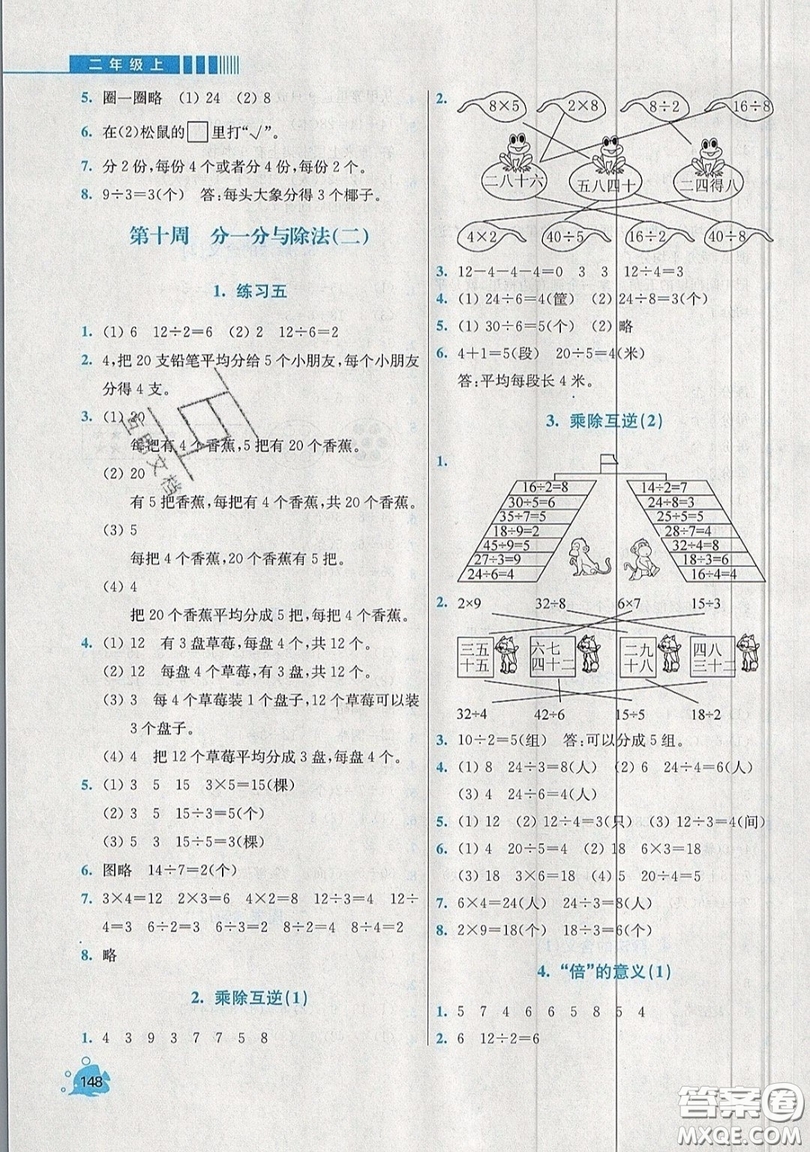 二年级上
5. 圈一圈略 (1) 24 (2) 8
6. 在(2)松鼠的□里打“√”。
7. 分2份,每份4个或者分4份,每份2个。
8. 9÷3=3(个) 答:每头大象分得3个椰子。
第十周 分一分与除法(二)
1. 练习五
1. (1) 6 12÷2=6 (2) 2 12÷6=2
2. 4,把20支铅笔平均分给5个小朋友,每个小朋友
分得4支。
3. (1) 20
每把有4个香蕉,5把有20个香蕉。
(2) 20
有5把香蕉,每把有4个香蕉,共有20个香蕉。
(3) 5
每把4个香蕉,20个香蕉有5把。
(4) 4
把20个香蕉平均分成5把,每把有4个香蕉。
4. (1) 12 有3盘草莓,每盘有4个,共12个。
(2) 12 每盘4个草莓,有3盘,共12个。
(3) 3 每4个草莓装1个盘子,12个草莓可以装
3个盘子。
(4) 4 把12个草莓平均分成3盘,每盘有4个。
5. (1) 3 5 15 3×5=15(棵)
(2) 3 5 15÷3=5(个)
(3) 5 3 15÷5=3(棵)
6. 图略 14÷7=2(个)
7. 3×4=12 2×3=6 4×2=8 12÷3=4 12÷
4=3 6÷2=3 6÷3=2 8÷2=4 8÷4=2
8. 略
2. 乘除互逆(1)
1. 4 3 9 3 7 7 5 8
148
2. 8×5 2×8 8÷2 16÷8
二八十六 五八四十 二四得八
4×2 40÷5 16÷2 40÷8
3. 12-4-4-4=0 3 3 12÷4=3
4. (1) 24÷6=4(筐) (2) 24÷8=3(个)
5. (1) 30÷6=5(个) (2) 略
6. 4+1=5(段) 20÷5=4(米)
答:平均每段长4米。
3. 乘除互逆(2)
1.
16÷2=8 14÷2=7
30÷5=6 24÷8=3
35÷7=5 25÷5=5
18÷9=2 28÷7=4
45÷9=5 32÷8=4
27÷3=9 18÷6=3
24÷6=4 16÷4=4
2. 2×9 32÷8 6×7 15÷3
三五十五 六七四十二 二九十八 四八三十二
32÷4 42÷6 15÷5 18÷2
3. 10÷2=5(组) 答:可以分成5组。
4. (1) 8 24÷3=8(人) (2) 6 24÷4=6(人)
(3) 4 24÷6=4(人)
5. (1) 12 (2) 12÷4=3(只) (3) 12÷3=4(间)
6. (1) 4 20÷5=4 (2) 18 6×3=18
(3) 5 20÷4=5 (4) 3 18÷6=3
7. 6×4=24(个) 24÷3=8(个)
8. 2×9=18(个) 18÷3=6(个)
4. “倍”的意义(1)
1. 5 7 4 6 6 5 8 5 4
2. 6 12÷2=6
答案圈
MXQE.COM